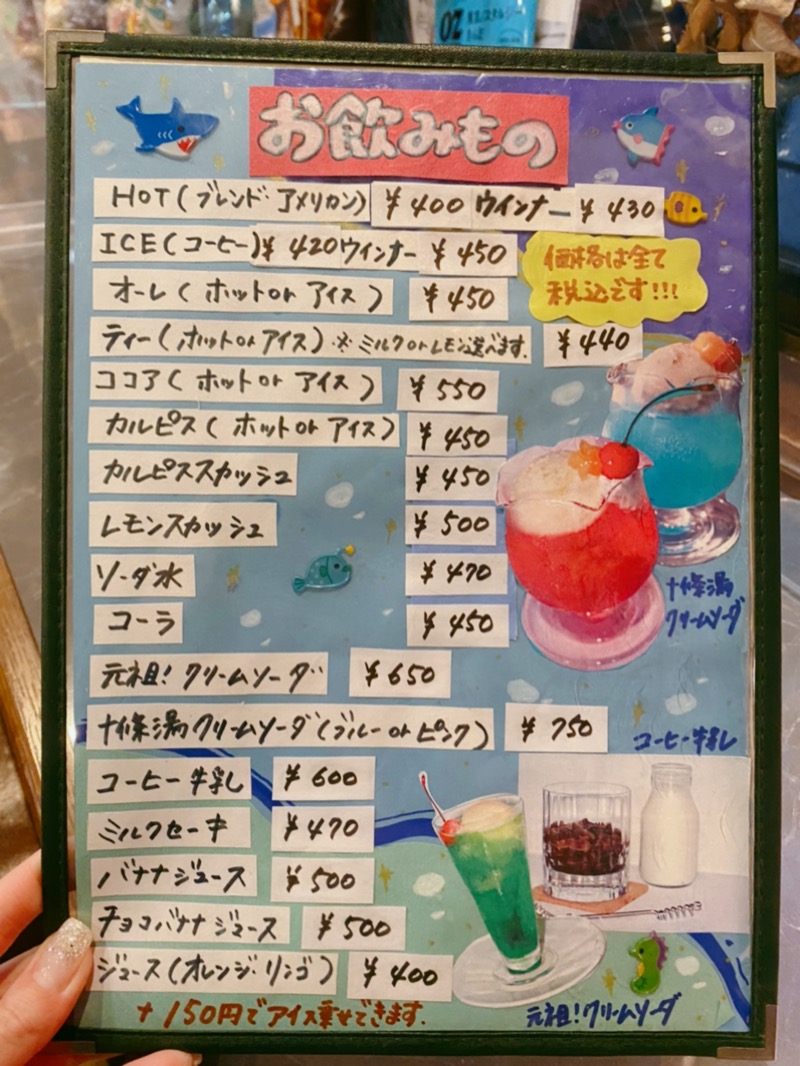 OZ
お飲みもの
HOT(ブレンド・アメリカン) ¥400 ウインナー ¥430
ICE(コーヒー) ¥420 ウインナー ¥450
価格は全て
税込です!!!
オーレ(ホットorアイス) ¥450
ティー(ホットorアイス)※ミルクorレモン選べます. ¥440
ココア(ホットorアイス) ¥550
カルピス(ホットorアイス) ¥450
カルピススカッシュ ¥450
レモンスカッシュ ¥500
ソーダ水 ¥470
コーラ ¥450
十條湯
クリームソーダ
元祖!クリームソーダ ¥650
十條湯クリームソーダ(ブルーorピンク) ¥750
コーヒー牛乳
コーヒー牛乳 ¥600
ミルクセーキ ¥470
バナナジュース ¥500
チョコバナナジュース ¥500
ジュース(オレンジ・リンゴ) ¥400
+150円でアイス乗せできます.
元祖!クリームソーダ